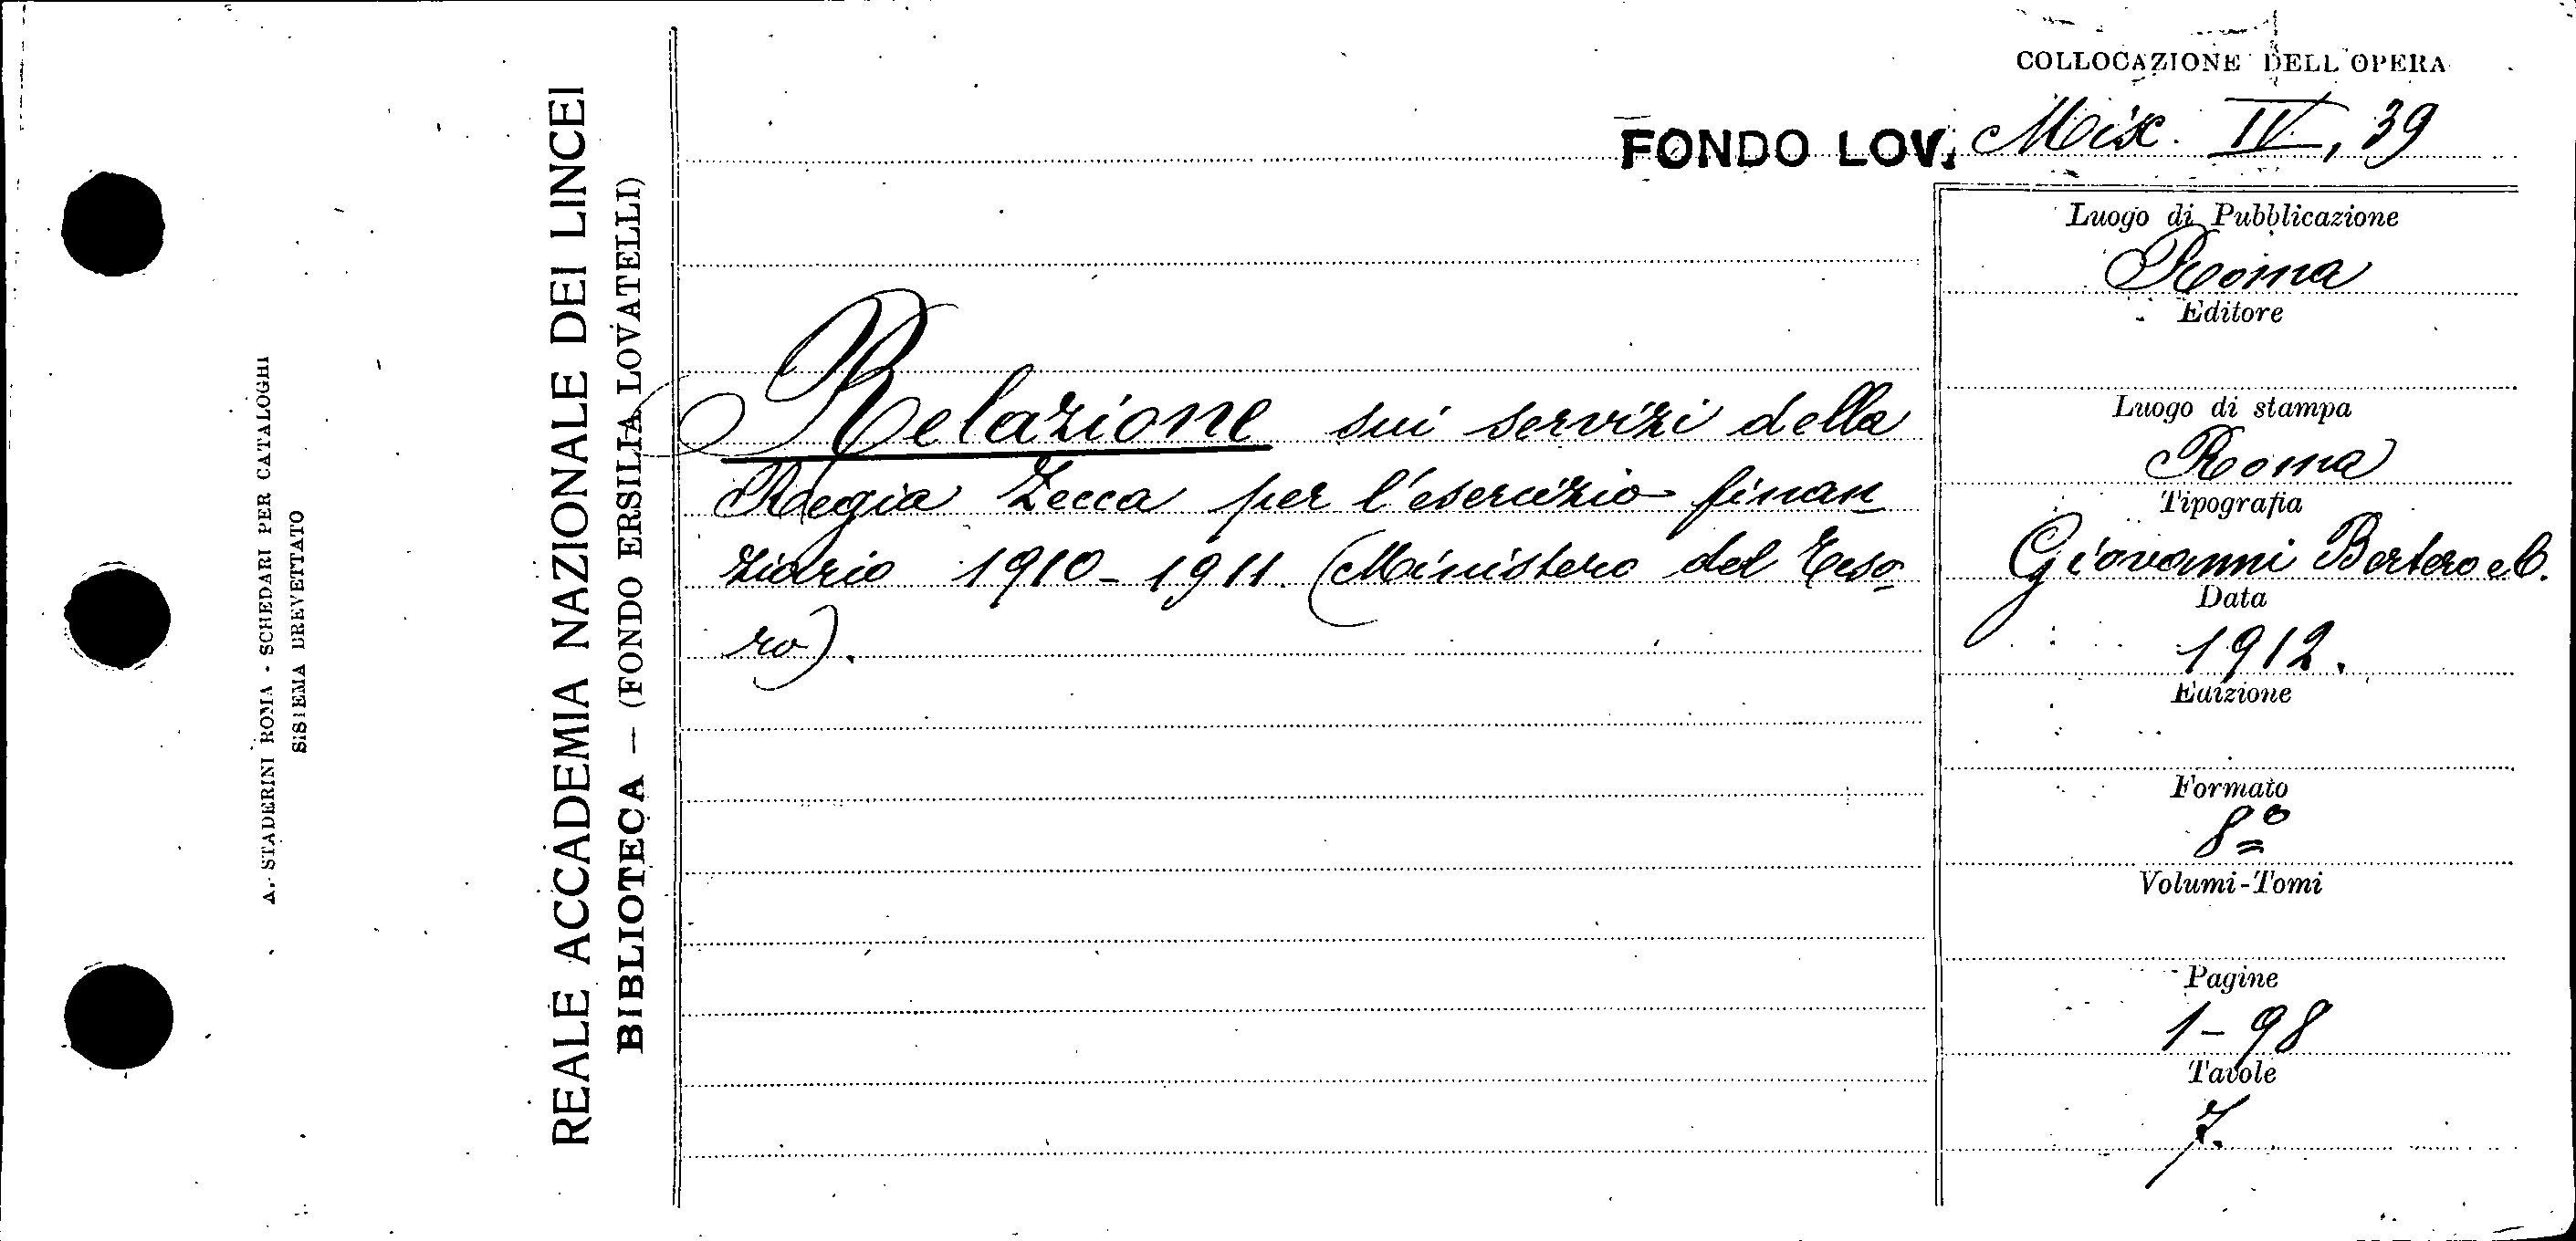 A. STADERINI ROMA - SCHEDARI PER CATALOGHI
SISTEMA BREVETTATO
REALE ACCADEMIA NAZIONALE DEI LINCEI
BIBLIOTECA — (FONDO ERSILIA LOVATELLI)
COLLOCAZIONE DELL'OPERA
FONDO LOV. Misc. IV, 39
Relazione sui servizi della
Regia Zecca per l'esercizio finan
ziario 1910-1911. (Ministero del Teso-
ro).
Luogo di Pubblicazione
Roma
Editore
Luogo di stampa
Roma
Tipografia
Giovanni Bertero e C.
Data
1912.
Edizione
Formato
8º
Volumi-Tomi
Pagine
1-98
Tavole
7.